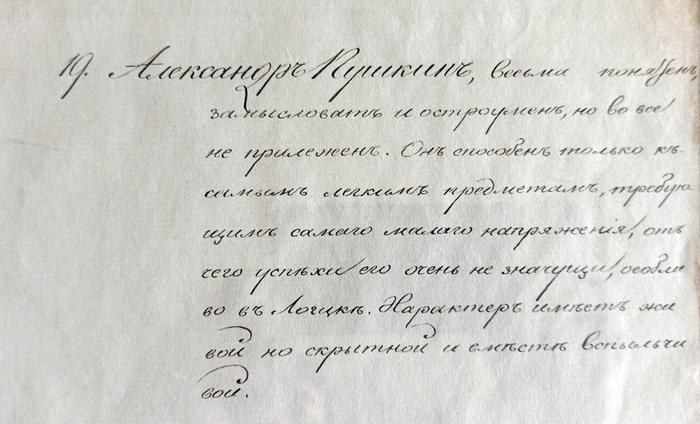 19. Александръ Пушкинъ, весьма понятенъ,
замысловатъ и остроуменъ, но во все
не прилеженъ. Онъ способенъ только къ
самымъ легкимъ предметамъ, требую
щимъ самаго малаго напряженія, отъ
чего успѣхи его очень не значущи, особли
во въ Логикѣ. Характеръ имѣетъ жи
вой но скрытной и вмѣстѣ вспыльчи
вой.